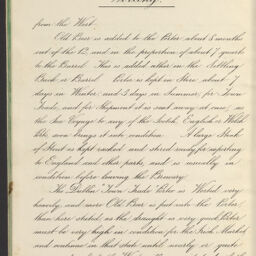 from the Wort.
Old Beer is added to the Porter about 8 months
out of the 12, and in the proportion of about 7 quarts
to the Barrel. This is added either in the Settling
Back or Barrel. Porter is kept in Store about 7
days in Winter and 3 days in Summer for Town
Trade, and for Shipment it is sent away at once, as
the Sea Voyage to any of the Scotch, English or Welsh
brings it into condition. A large Stock
of Stout is kept racked and stored ready for exporting
to England and other parts, and is usually in
condition before leaving the Brewery.
The Dublin Town Trade Porter is Worked very
heavily, and more Old Beer is put into the Porter
than here stated, as the draught is very good. Porter
must be very high in condition for the Irish Market
and continue in that state until nearly or quite